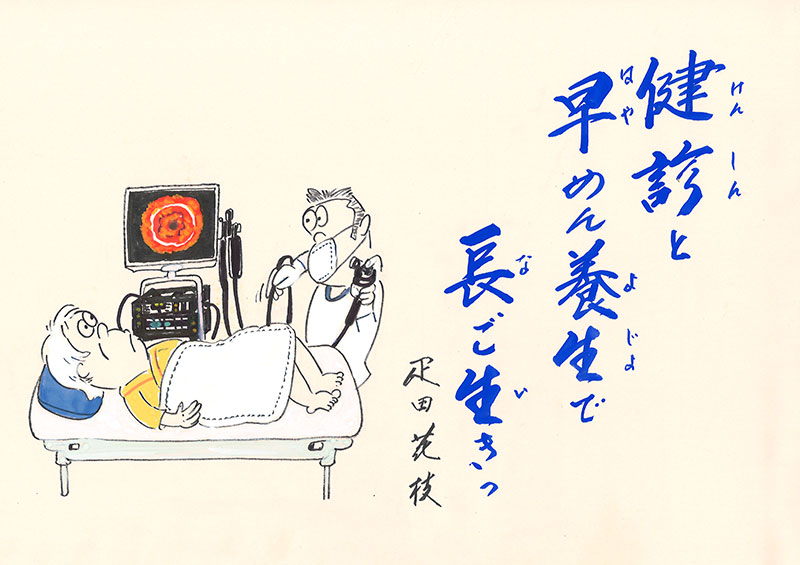 けん しん
健診と
はや よ じよ
早めん養生で
な い
長ご生きっ
疋田花枝